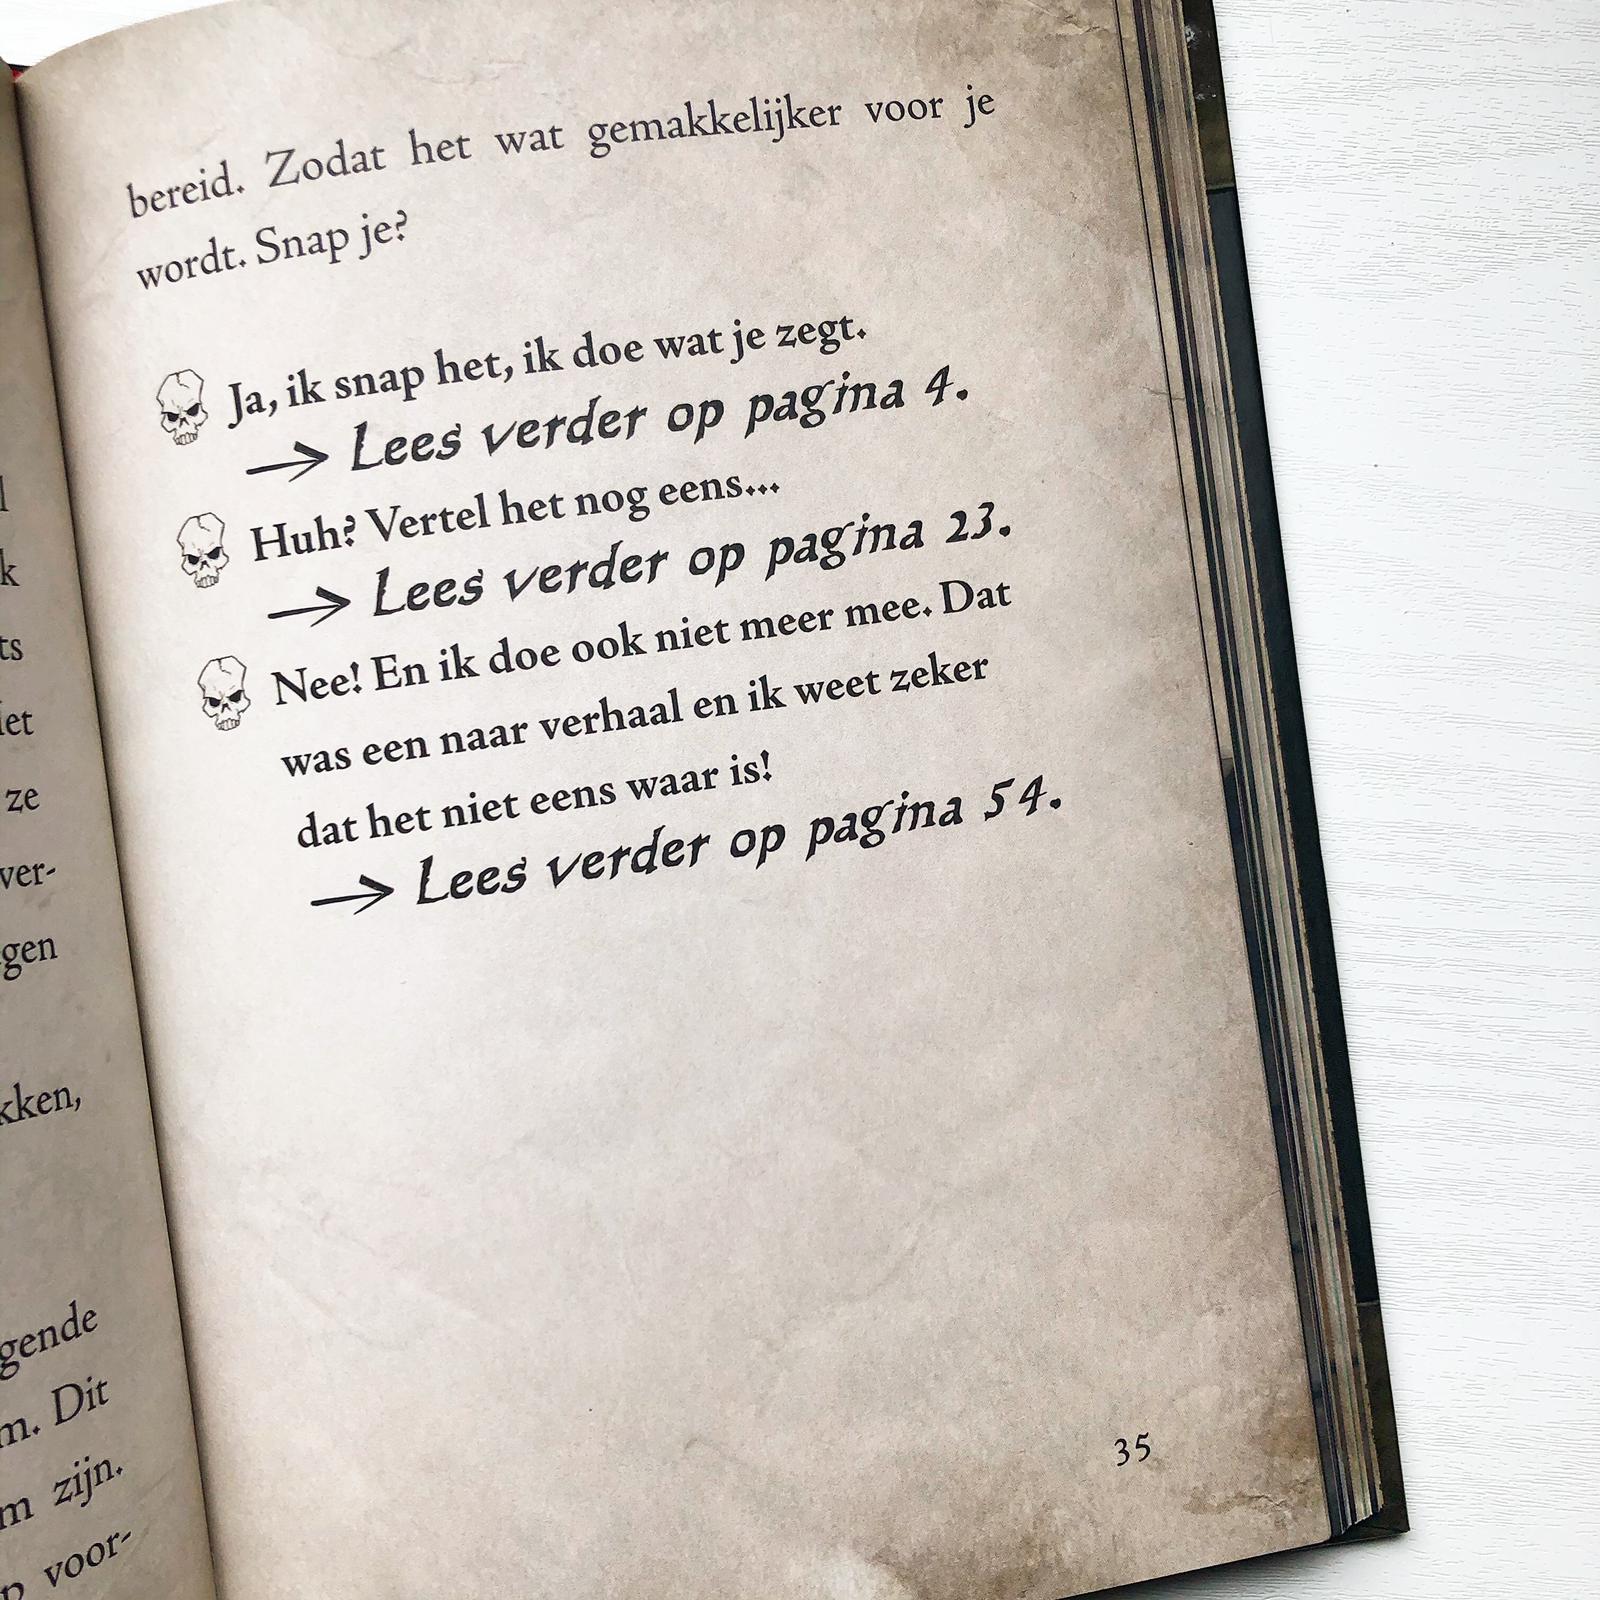 l
k
ts
iet
ze
ver-
gen
kken,
gende
m. Dit
m zijn.
p voor-
bereid. Zodat het wat gemakkelijker voor je
wordt. Snap je?
Ja, ik snap het, ik doe wat je zegt.
→ Lees verder op pagina 4.
Huh? Vertel het nog eens...
→ Lees verder op pagina 23.
Nee! En ik doe ook niet meer mee. Dat
was een naar verhaal en ik weet zeker
dat het niet eens waar is!
→ Lees verder op pagina 54.
35